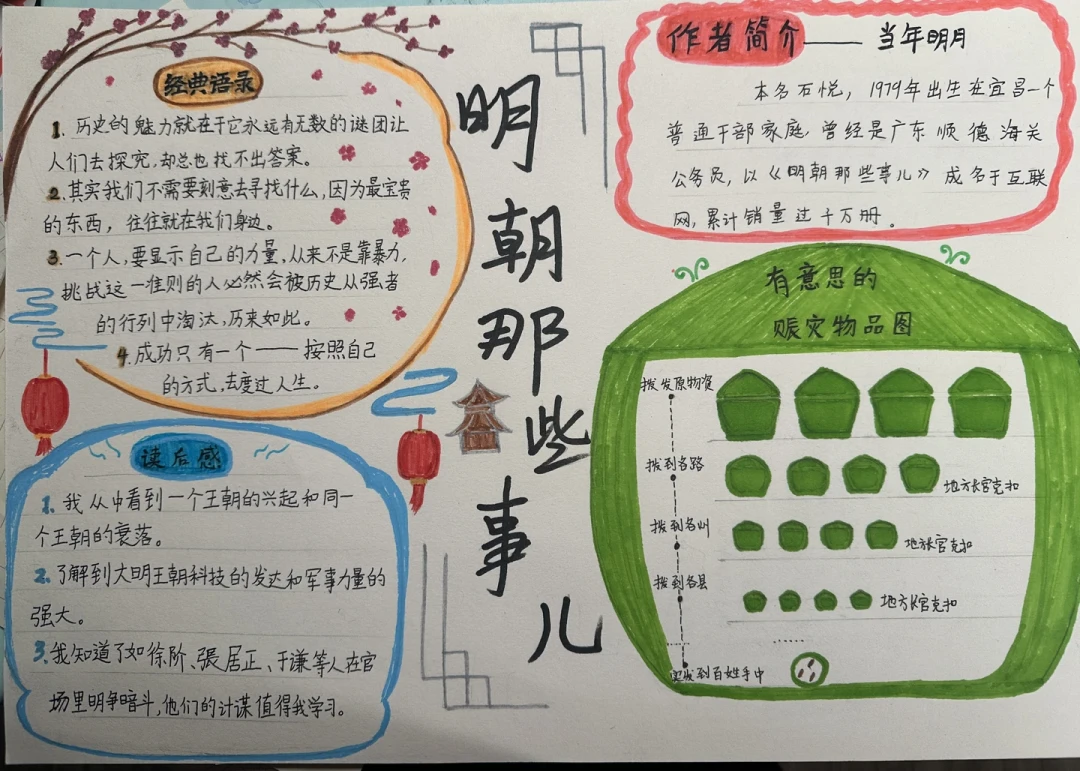 经典语录
1. 历史的魅力就在于它永远有无数的谜团让
人们去探究,却总也找不出答案。
2.其实我们不需要刻意去寻找什么,因为最宝贵
的东西,往往就在我们身边。
3.一个人,要显示自己的力量,从来不是靠暴力,
挑战这一准则的人必然会被历史从强者
的行列中淘汰,历来如此。
4.成功只有一个——按照自己
的方式,去度过人生。
读后感
1.我从中看到一个王朝的兴起和同一
个王朝的衰落。
2.了解到大明王朝科技的发达和军事力量的
强大。
3.我知道了如徐阶、張居正、于谦等人在官
场里明争暗斗,他们的计谋值得我学习。
明朝那些事儿
作者简介——当年明月
本名石悦,1979年出生在宜昌一个
普通干部家庭,曾经是广东顺德海关
公务员,以《明朝那些事儿》成名于互联
网,累计销量过千万册。
有意思的
赈灾物品图
拨发原物资
拨到各路
地方长官克扣
拨到各州
地方长官克扣
拨到各县
地方长官克扣
到百姓手中